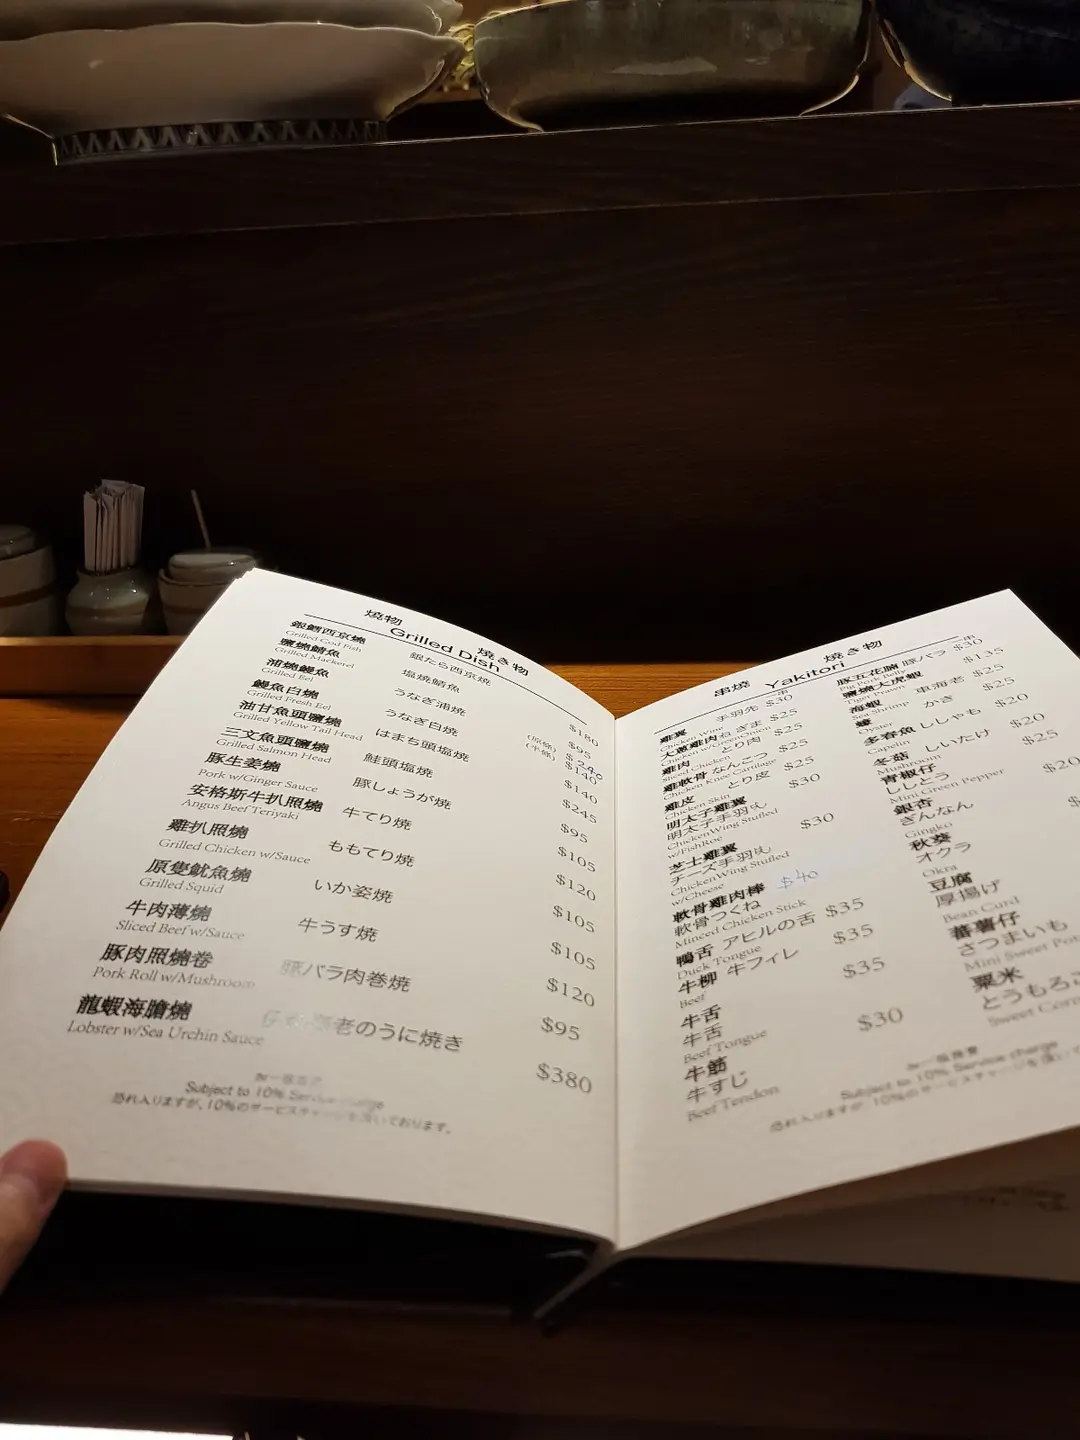 燒物
Grilled Dish
焼き物
銀鱈西京燒 銀たら西京焼 $180
Grilled Cod Fish
鹽燒鯖魚 塩焼鯖魚 $95
Grilled Mackerel
蒲燒鰻魚 うなぎ蒲焼 240
Grilled Eel
$140
鰻魚白燒 うなぎ白焼
Grilled Fresh Eel
油甘魚頭鹽燒 はまち頭塩焼 $140
Grilled Yellow Tail Head
三文魚頭鹽燒 鮭頭塩焼
Grilled Salmon Head
豚生姜燒 豚しょうが焼
Pork w/Ginger Sauce
$245
安格斯牛扒照燒 牛てり焼
Angus Beef Teriyaki
$95
雞扒照燒 ももてり焼
Grilled Chicken w/Sauce
$105
原隻魷魚燒 いか姿焼
Grilled Squid
$120
牛肉薄燒 牛うす焼
Sliced Beef w/Sauce
$105
$105
豚肉照燒卷 豚バラ肉巻焼
Pork Roll w/Mushroom
$120
$95
龍蝦海膽燒 老のうに焼き
Lobster w/Sea Urchin Sauce
$380
加一服務費
Subject to 10% Service charge
恐れ入りますが、10%のサービスチャージを頂いております。
串燒 Yakitori 焼き物
一串
雞翼 手羽先 $30
Chicken Wing
大蔥雞肉 ねぎま $25
Chicken w/GreenOnion
雞肉 とり肉 $25
Sliced Chicken
雞軟骨 なんこつ $25
Chicken Knee Cartilage
雞皮 とり皮 $25
Chicken Skin
明太子雞翼 $30
明太子手羽先
ChickenWing Stuffed
w/FishRoe
芝士雞翼 $30
チーズ手羽先
ChickenWing Stuffed
w/Cheese
軟骨雞肉棒 $40
軟骨つくね
Minced Chicken Stick
鴨舌 アヒルの舌 $35
Duck Tongue
牛柳 牛フィレ $35
Beef
牛舌 $35
牛舌
Beef Tongue
牛筋 $30
牛すじ
Beef Tendon
一串
豚五花腩 豚バラ $30
Pig Pork Belly
鹽燒大虎蝦 $135
Tiger Prawn
海蝦 車海老 $25
Sea Shrimp
蠔 かき $25
Oyster
多春魚 ししゃも $20
Capelin
冬菇 しいたけ $20
Mushroom
青椒仔 $25
ししとう
Mini Green Pepper
銀杏 $20
ぎんなん
Gingko
秋葵
オクラ
Okra
豆腐
厚揚げ
Bean Curd
蕃薯仔
さつまいも
Mini Sweet
粟米
とうもろ
Sweet
加一服務費
Subject to 10% Service charge
恐れ入りますが、10%のサービスチャージを頂いて